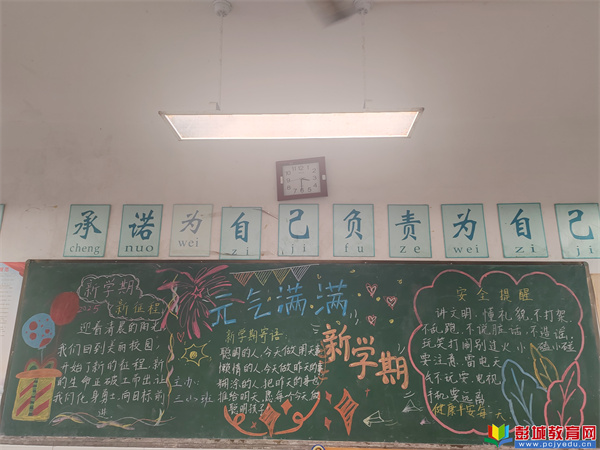 承 诺 为 自 己 负 责 为 自 己
cheng nuo wei zi ji fu ze wei zi ji
新学期
新征程
迎着清晨的阳光
我们回到美丽校园,
开始了新的征程,新
主办:
三小班
元气满满
新学期寄语
聪明的人,今天做明天事
懒惰的人,今天做昨天的事
糊涂的人,把昨天的事也
推给明天,愿每个今天做
聪明孩子
新学期
安全提醒
讲文明,懂礼貌,不打架
不乱跑,不说脏话,不造谣,
玩笑打闹别过火,小
要注意,雷电天
健康平安每一天
彭城教育网
www.pcjyedu.cn